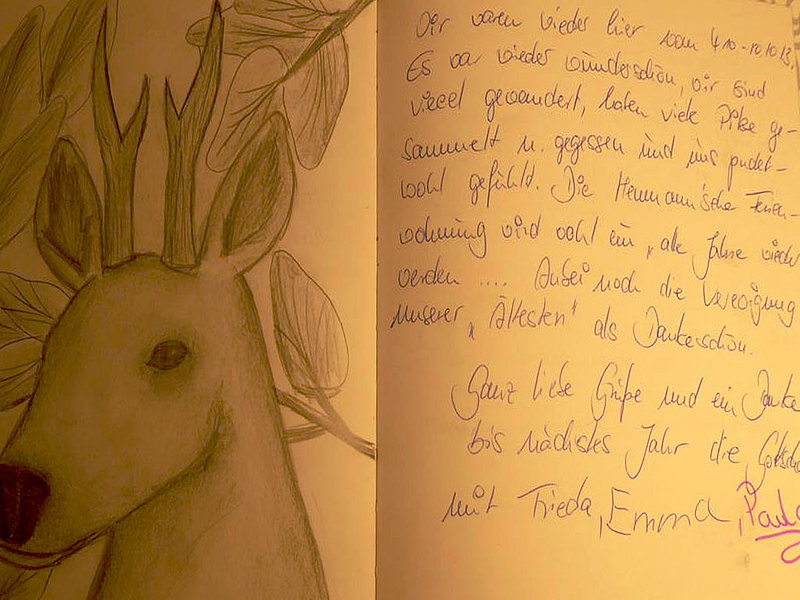 Wir waren wieder hier vom 4.10-10.10.13.
Es war wieder wunderschön, wir sind
vieeel gewandert, haben viele Pilze ge-
sammelt u. gegessen und uns pudel-
wohl gefühlt. Die Hermann'sche Ferien-
wohnung wird wohl ein "alle Jahre wieder
werden .... Anbei noch die Verewigung
unserer "Ältesten" als Dankeschön.
Ganz liebe Grüße und ein Danke
bis nächstes Jahr die
mit Frieda, Emma, Paula